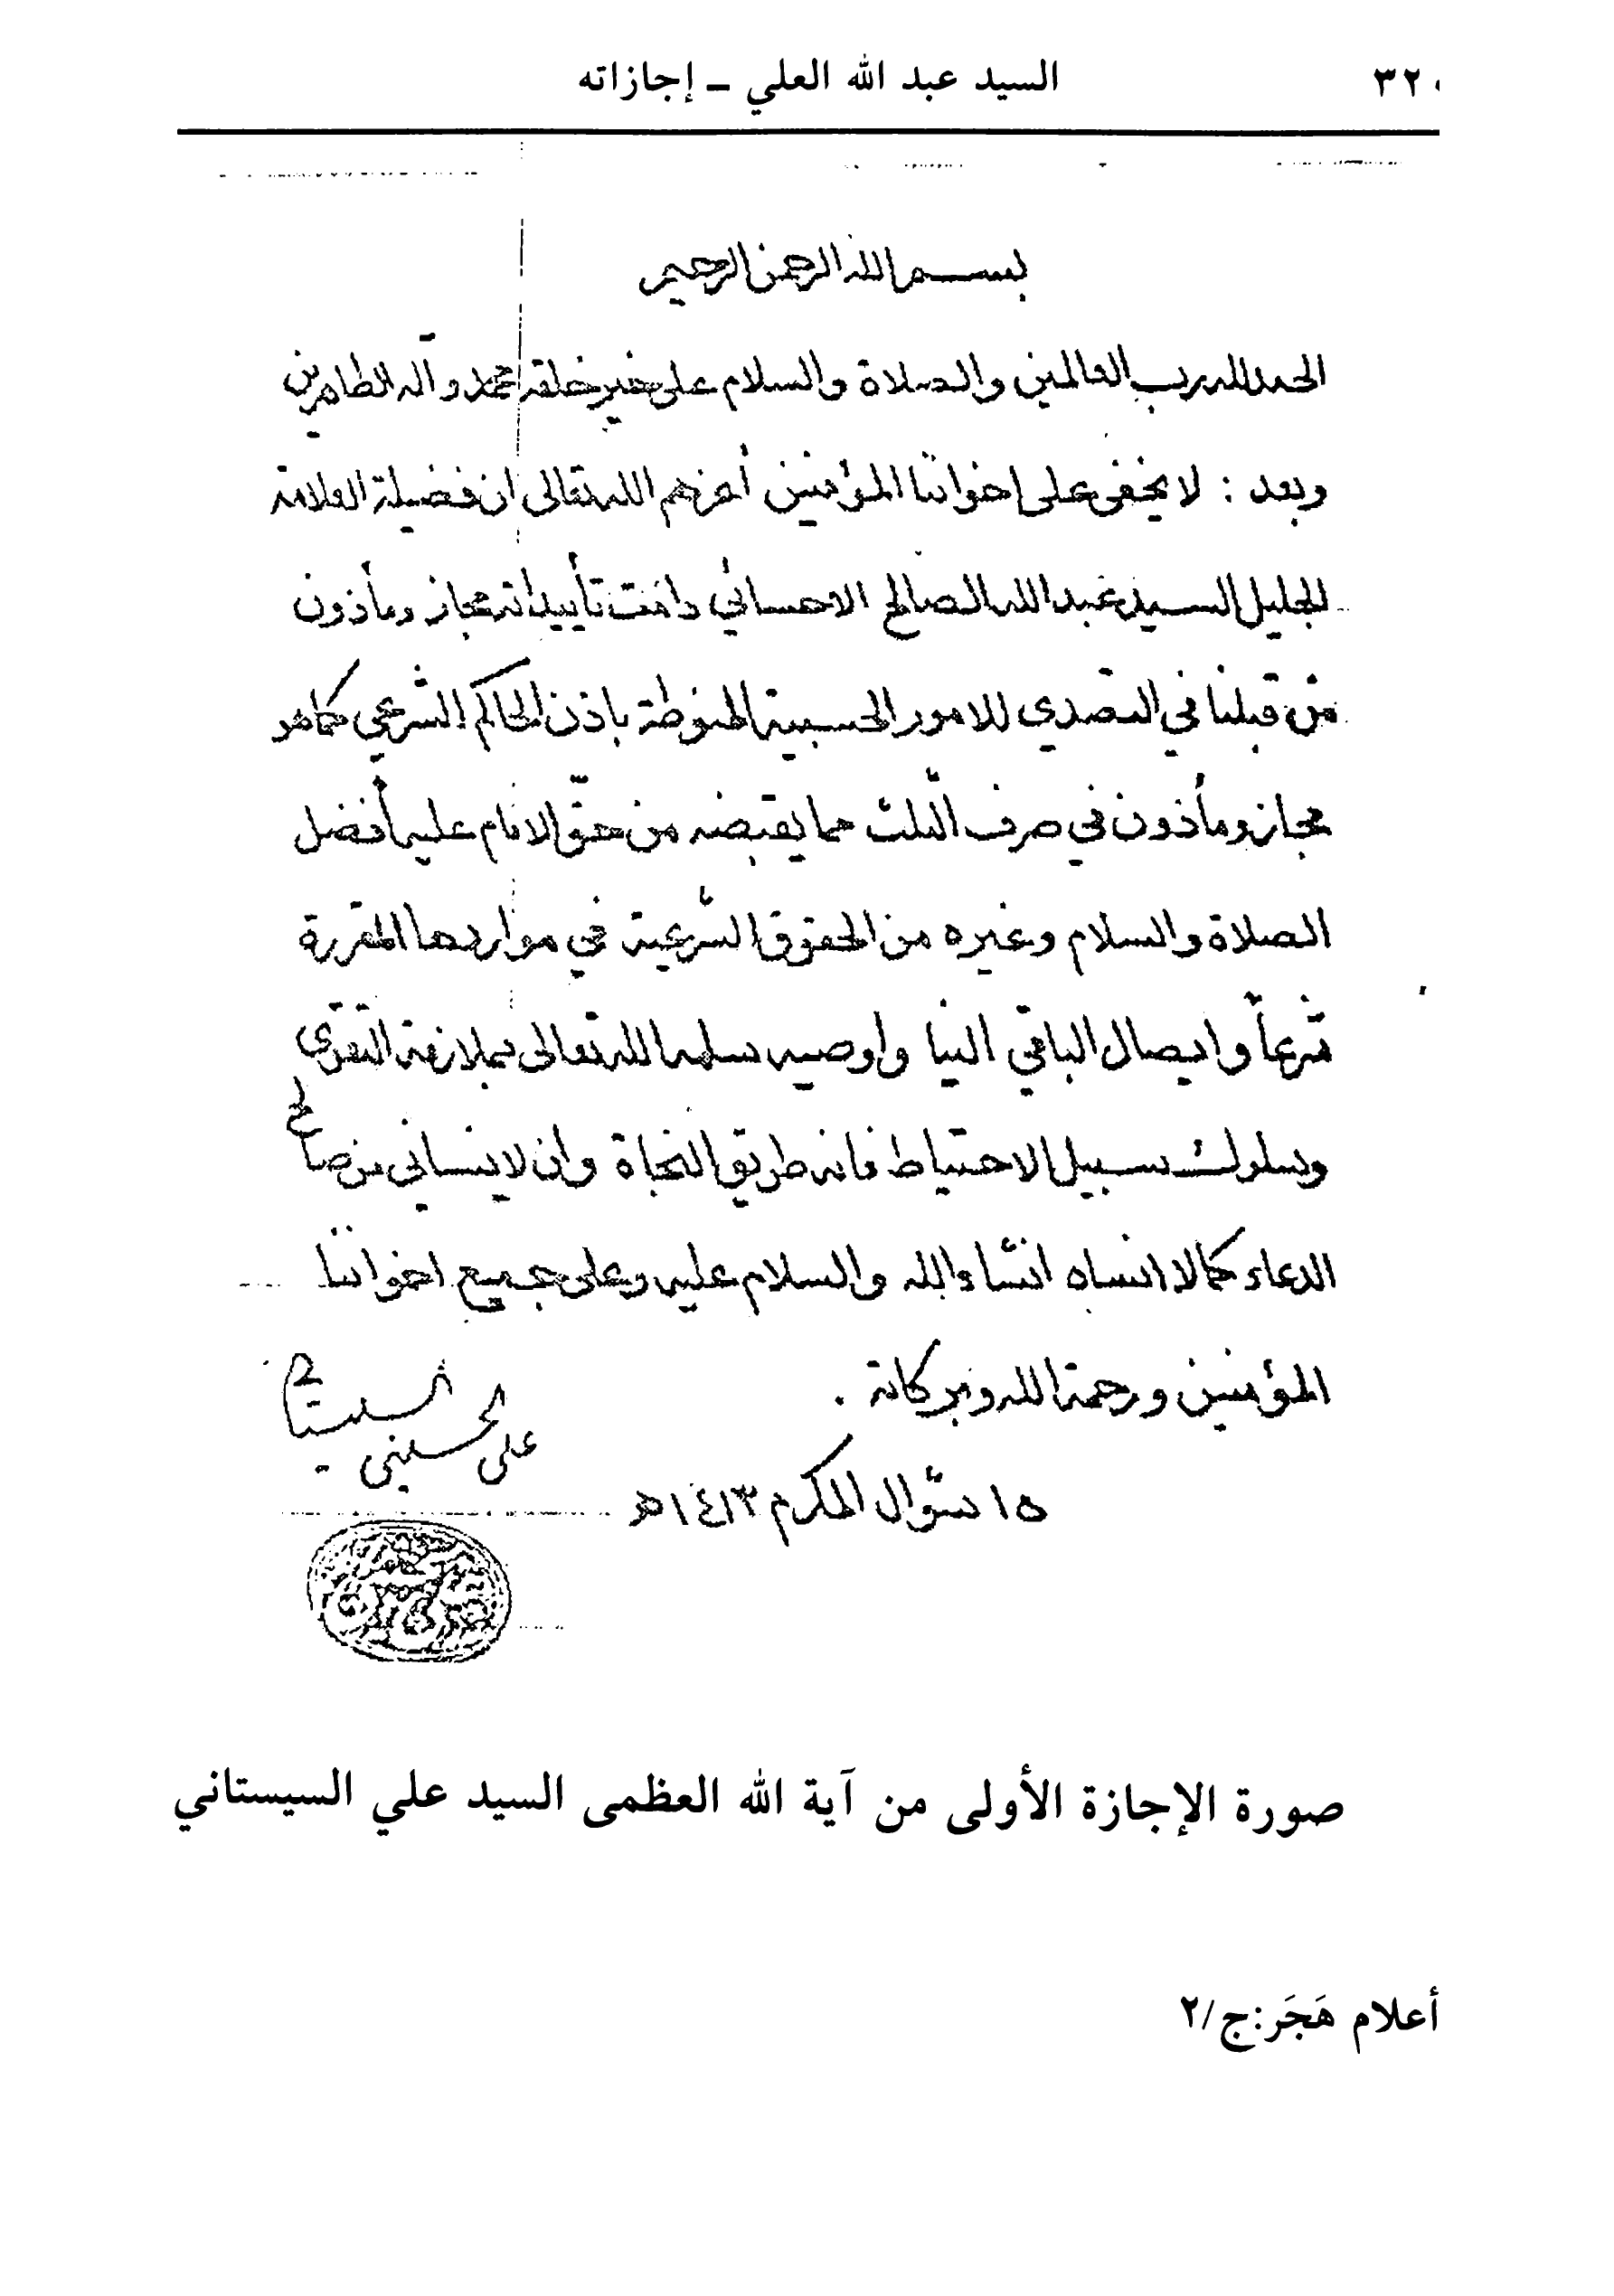 ٣٢٠ السيد عبد الله العلي ـ إجازاته
بسم الله الرحمن الرحيم
الحمد لله رب العالمين والصلاة والسلام على خير خلقه محمد وآله الطاهرين
وبعد : لا يخفى على إخواننا المؤمنين أعزهم الله تعالى ان فضيلة العلامة
الجليل السيد عبد الله الصالح الاحسائي دامت تأييداته مجاز ومأذون
من قبلنا في التصدي للامور الحسبية المنوطة باذن الحاكم الشرعي كما هو
مجاز ومأذون في صرف الثلث مما يقبضه من حق الامام عليه أفضل
الصلاة والسلام وغيره من الحقوق الشرعية في مواردها المقررة
شرعاً وايصال الباقي الينا واوصيه سلمه الله تعالى بملازمة التقوى
وسلوك سبيل الاحتياط فانه طريق النجاة وان لا ينساني من صالح
الدعاء كما لا انساه انشاء الله والسلام عليه وعلى جميع اخواننا
المؤمنين ورحمة الله وبركاته .
علي الحسيني السيستاني
١٥ شوال المكرم ١٤١٣هـ
صورة الإجازة الأولى من آية الله العظمى السيد علي السيستاني
أعلام هَجَر:ج/٢